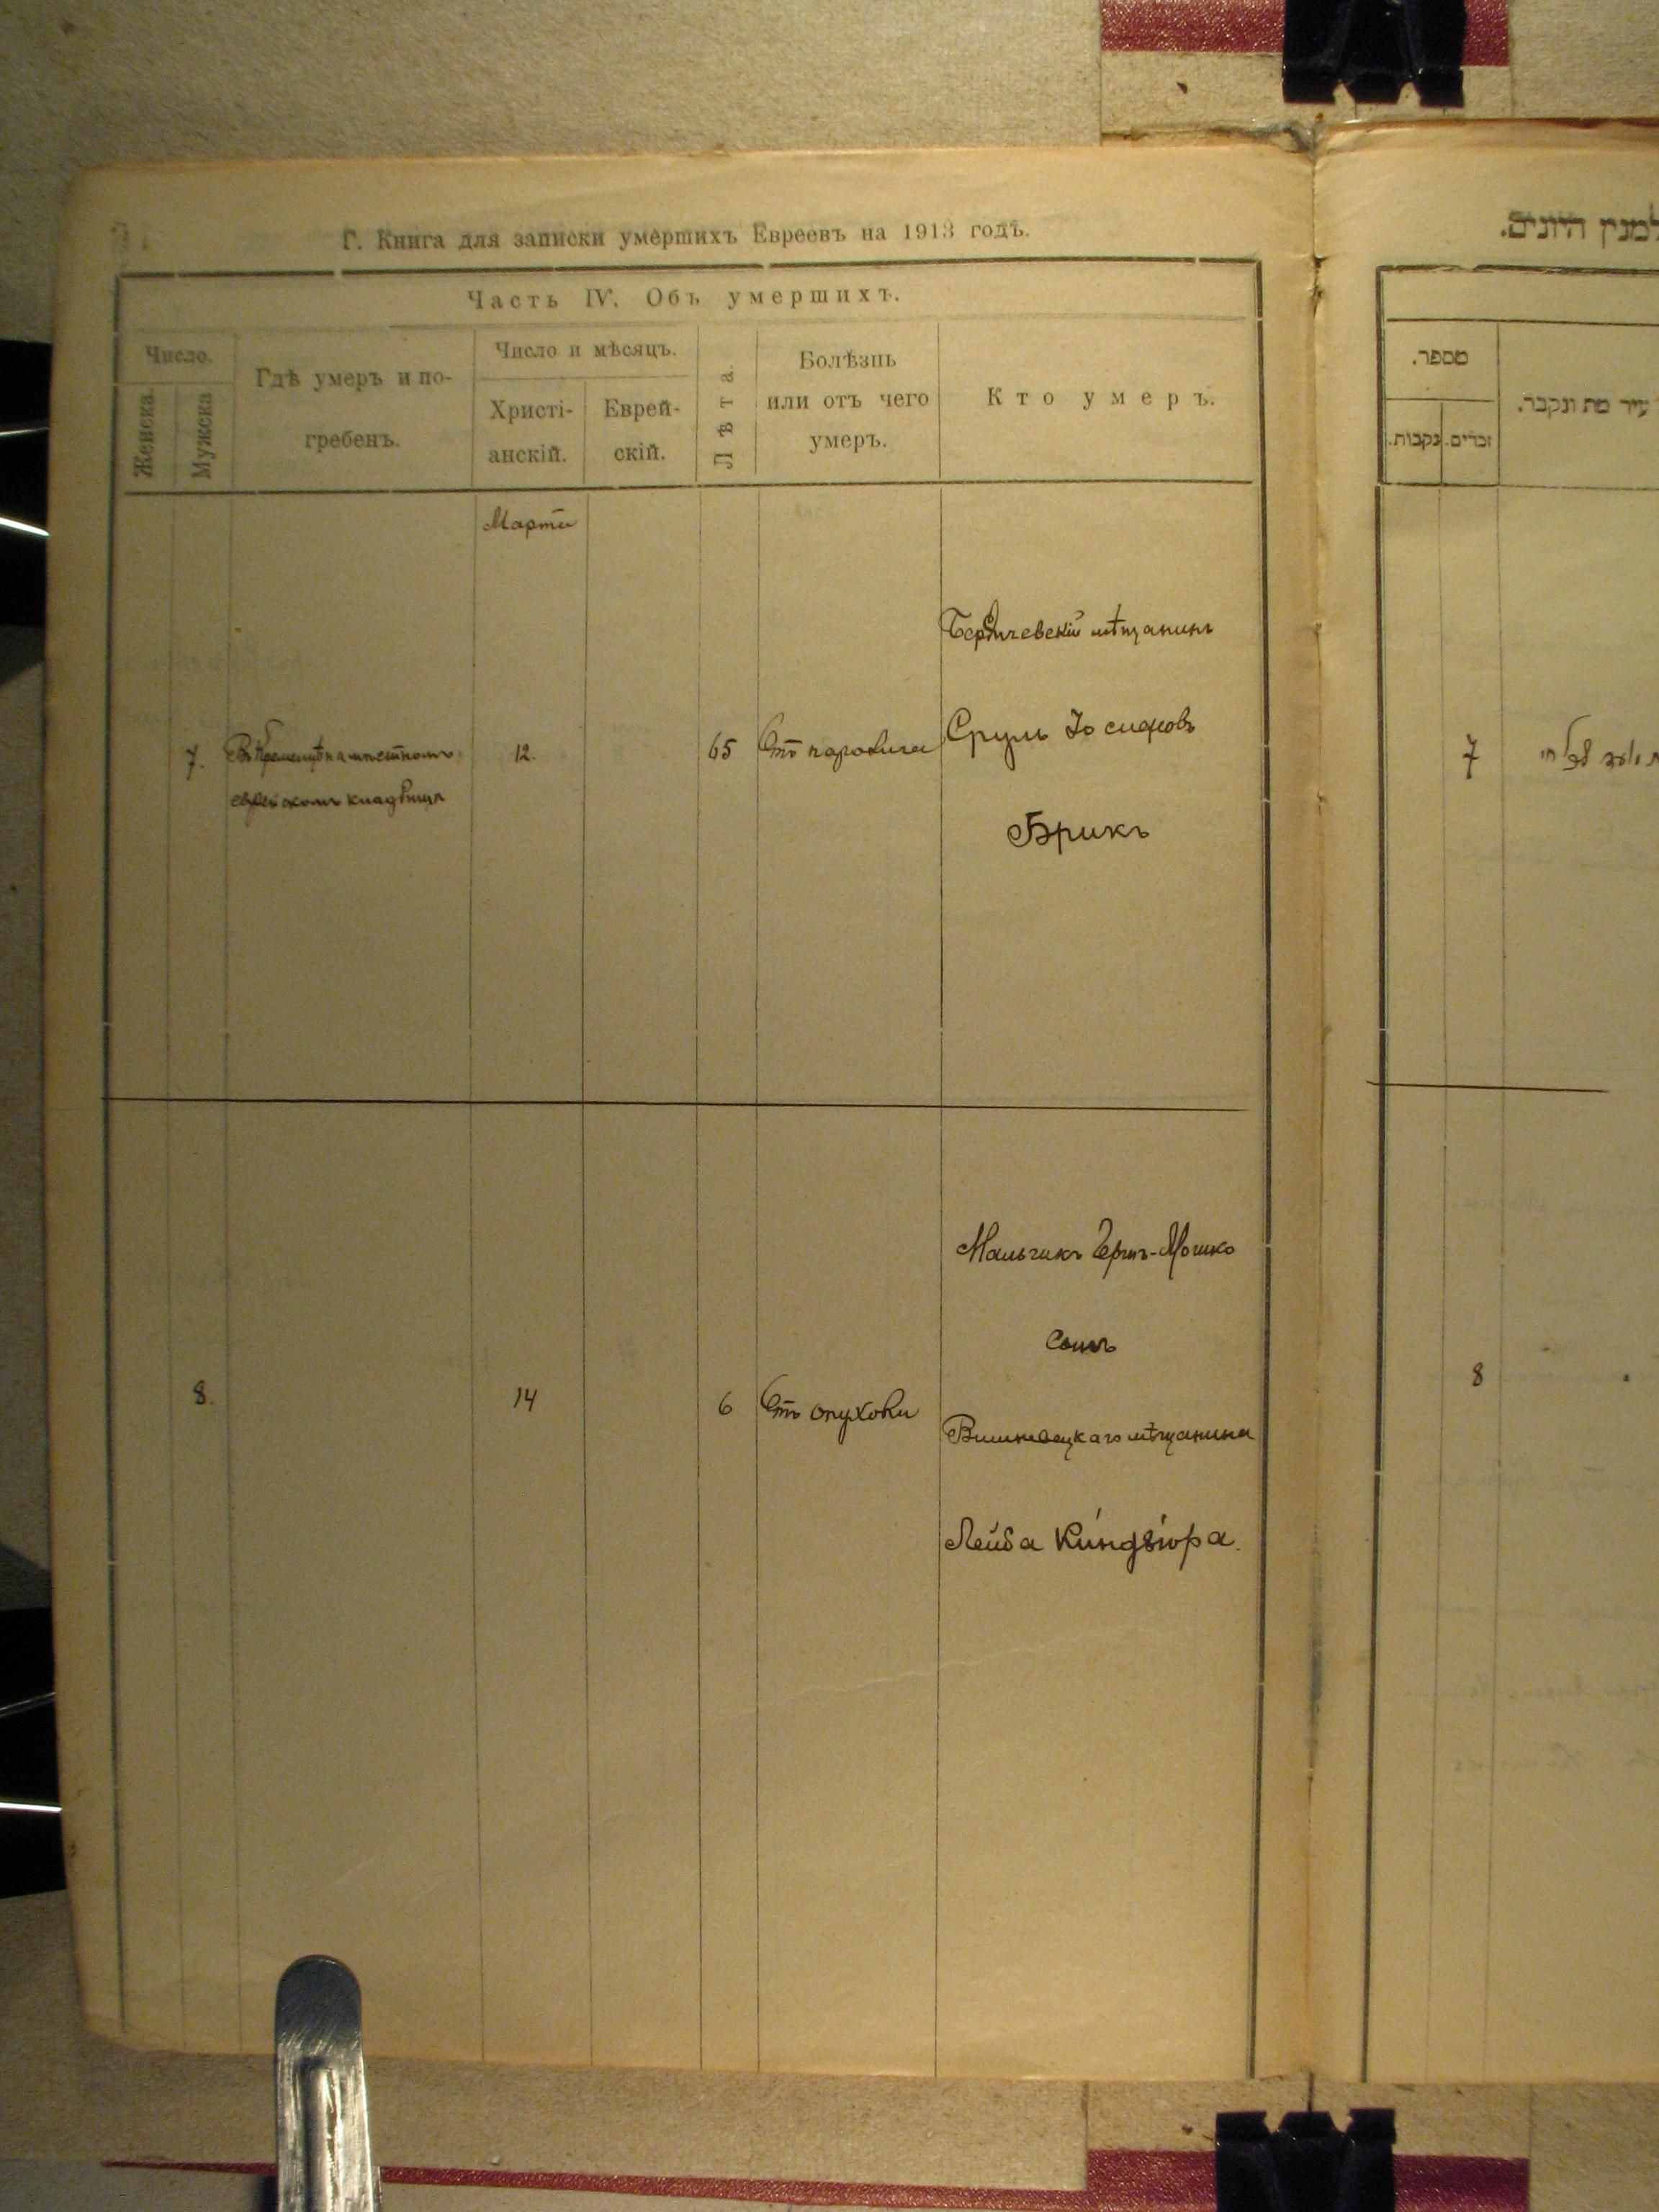 Г. Книга для записки умершихъ Евреевъ на 1913 годъ.
Часть IV. Объ умершихъ.
Число.
Женска.
Мужска
Гдѣ умеръ и по-
гребенъ.
Число и мѣсяцъ.
Христі-
анскій.
Еврей-
скій.
Лѣта.
Болѣзнь
или отъ чего
умеръ.
Кто умеръ.
Марта
7.
Въ Кременцѣ на мѣстномъ
еврейскомъ кладбищѣ
12.
65
Отъ паралича
Бердичевскій мѣщанинъ
Сруль Іосифовъ
Брикъ
8.
14
6
Отъ опухоли
Мальчикъ Герш-Мошко
сынъ
Вишневецкаго мѣщанина
Лейба Киндзіора.
למנין היונים.
מספר.
זכרים.
נקבות.
עיר מת ונקבר.
7
8